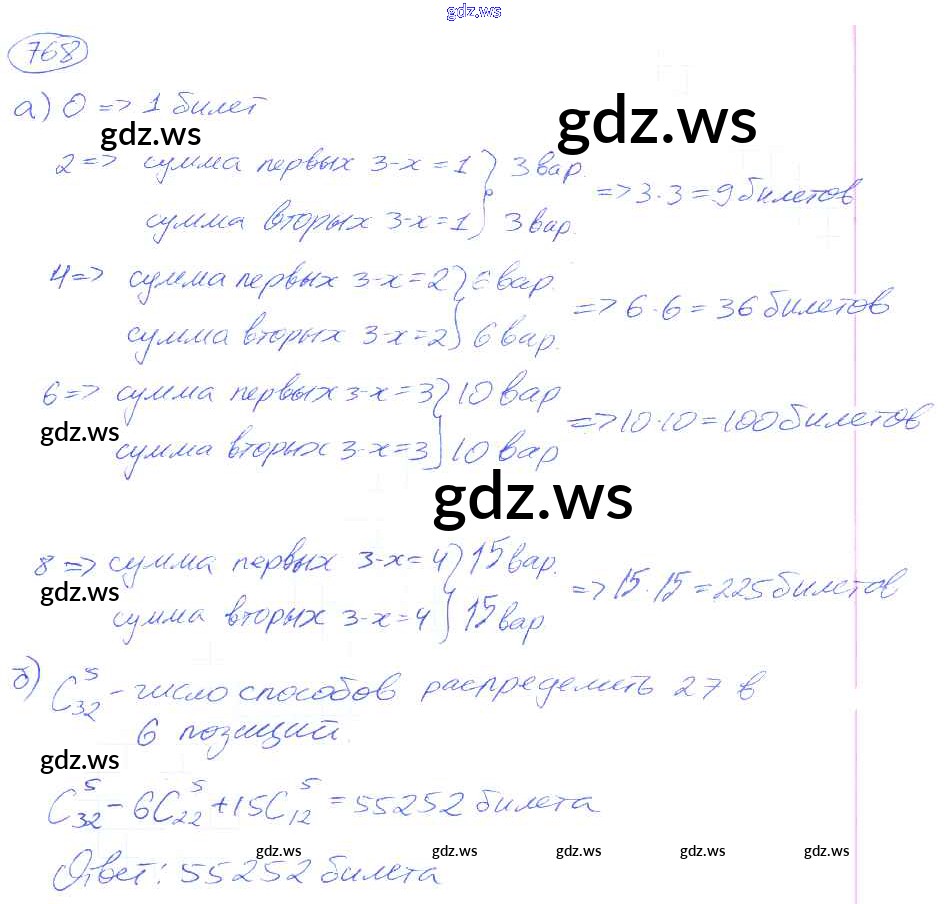 gdz.ws
768
а) 0 => 1 билет
gdz.ws
gdz.ws
2 => сумма первых 3-х = 1 } 3 вар.
сумма вторых 3-х = 1 } 3 вар. => 3·3 = 9 билетов
4 => сумма первых 3-х = 2 } 6 вар.
сумма вторых 3-х = 2 } 6 вар. => 6·6 = 36 билетов
6 => сумма первых 3-х = 3 } 10 вар
gdz.ws
сумма вторых 3-х = 3 } 10 вар => 10·10 = 100 билетов
gdz.ws
8 => сумма первых 3-х = 4 } 15 вар.
gdz.ws
сумма вторых 3-х = 4 } 15 вар => 15·15 = 225 билетов
б) C₃₂⁵ - число способов распределить 27 в
6 позиций.
gdz.ws
C₃₂⁵ - 6C₂₂⁵ + 15C₁₂⁵ = 55252 билета
gdz.ws gdz.ws gdz.ws gdz.ws gdz.ws
Ответ: 55252 билета